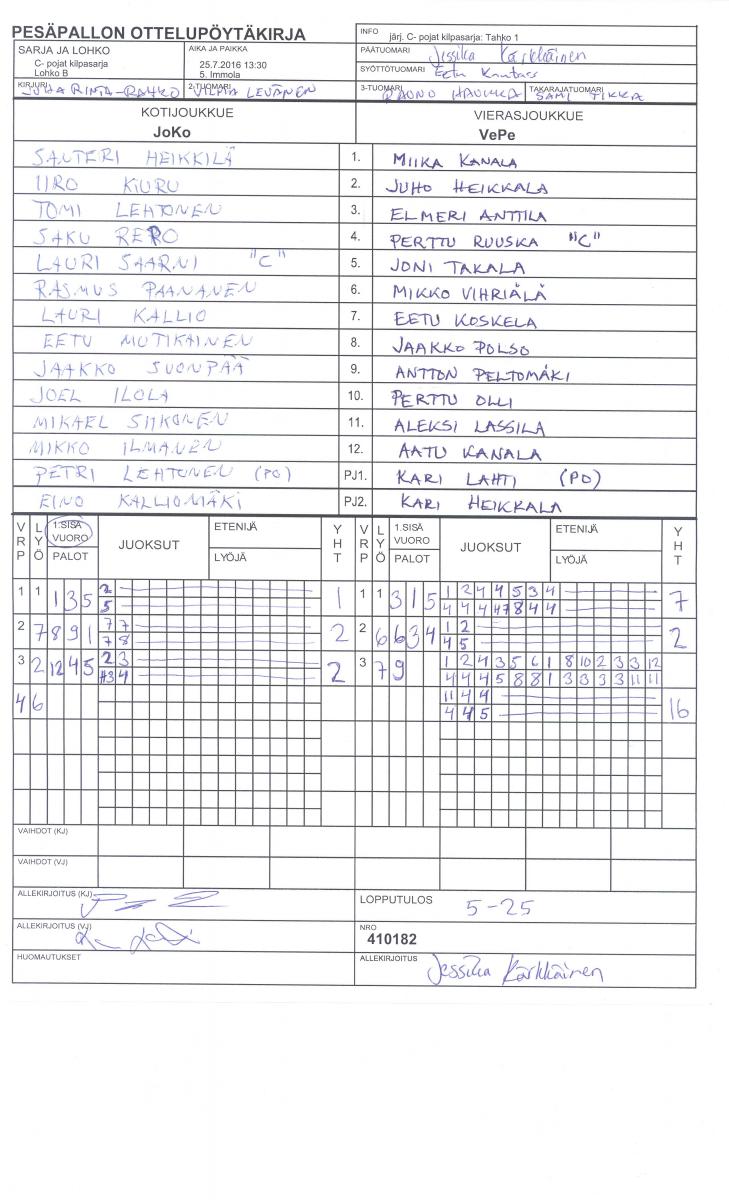 PESÄPALLON OTTELUPÖYTÄKIRJA
INFO järj. C- pojat kilpasarja: Tahko 1
SARJA JA LOHKO
C- pojat kilpasarja
Lohko B
AIKA JA PAIKKA
25.7.2016 13:30
5. Immola
PÄÄTUOMARI Jessika Kärkkäinen
SYÖTTÖTUOMARI Eetu
KIRJURI JUHA RINTA-RAHKO
2-TUOMARI VILMA LEVÄNEN
3-TUOMARI RAUNO HAUKKA
TAKARAJATUOMARI SAMI TIKKA
KOTIJOUKKUE
JoKo
VIERASJOUKKUE
VePe
SAUTERI HEIKKILÄ 1. MIIKA KANALA
IIRO KIURU 2. JUHO HEIKKALA
TOMI LEHTONEN 3. ELMERI ANTTILA
SAKU RERO 4. PERTTU RUUSKA "C"
LAURI SAARNI "C" 5. JONI TAKALA
RASMUS PAANANEN 6. MIKKO VIHRIÄLÄ
LAURI KALLIO 7. EETU KOSKELA
EETU MUTIKAINEN 8. JAAKKO POLSO
JAAKKO SUONPÄÄ 9. ANTTON PELTOMÄKI
JOEL ILOLA 10. PERTTU OLLI
MIKAEL SIIKONEN 11. ALEKSI LASSILA
MIKKO ILMANEN 12. AATU KANALA
PETRI LEHTONEN (PO) PJ1. KARI LAHTI (PO)
EINO KALLIOMÄKI PJ2. KARI HEIKKALA
VRP LYÖ 1.SISÄ VUORO PALOT JUOKSUT ETENIJÄ LYÖJÄ YHT VRP LYÖ 1.SISÄ VUORO PALOT JUOKSUT ETENIJÄ LYÖJÄ YHT
1 1 1 3 5 2 1 1 1 3 1 5 1 2 4 4 5 3 4 7
5 4 4 4 47 8 4 4
2 7 8 9 1 7 7 2 2 6 6 3 4 1 2 2
7 8 4 5
3 2 12 4 5 2 3 2 3 7 9 1 2 4 3 5 6 1 8 10 2 3 3 12
#3 4 4 4 4 5 8 8 1 3 3 3 3 11 11
4 6 11 4 4 16
4 4 5
VAIHDOT (KJ)
VAIHDOT (VJ)
ALLEKIRJOITUS (KJ)
LOPPUTULOS 5-25
ALLEKIRJOITUS (VJ)
NRO
410182
HUOMAUTUKSET
ALLEKIRJOITUS Jessika Kärkkäinen